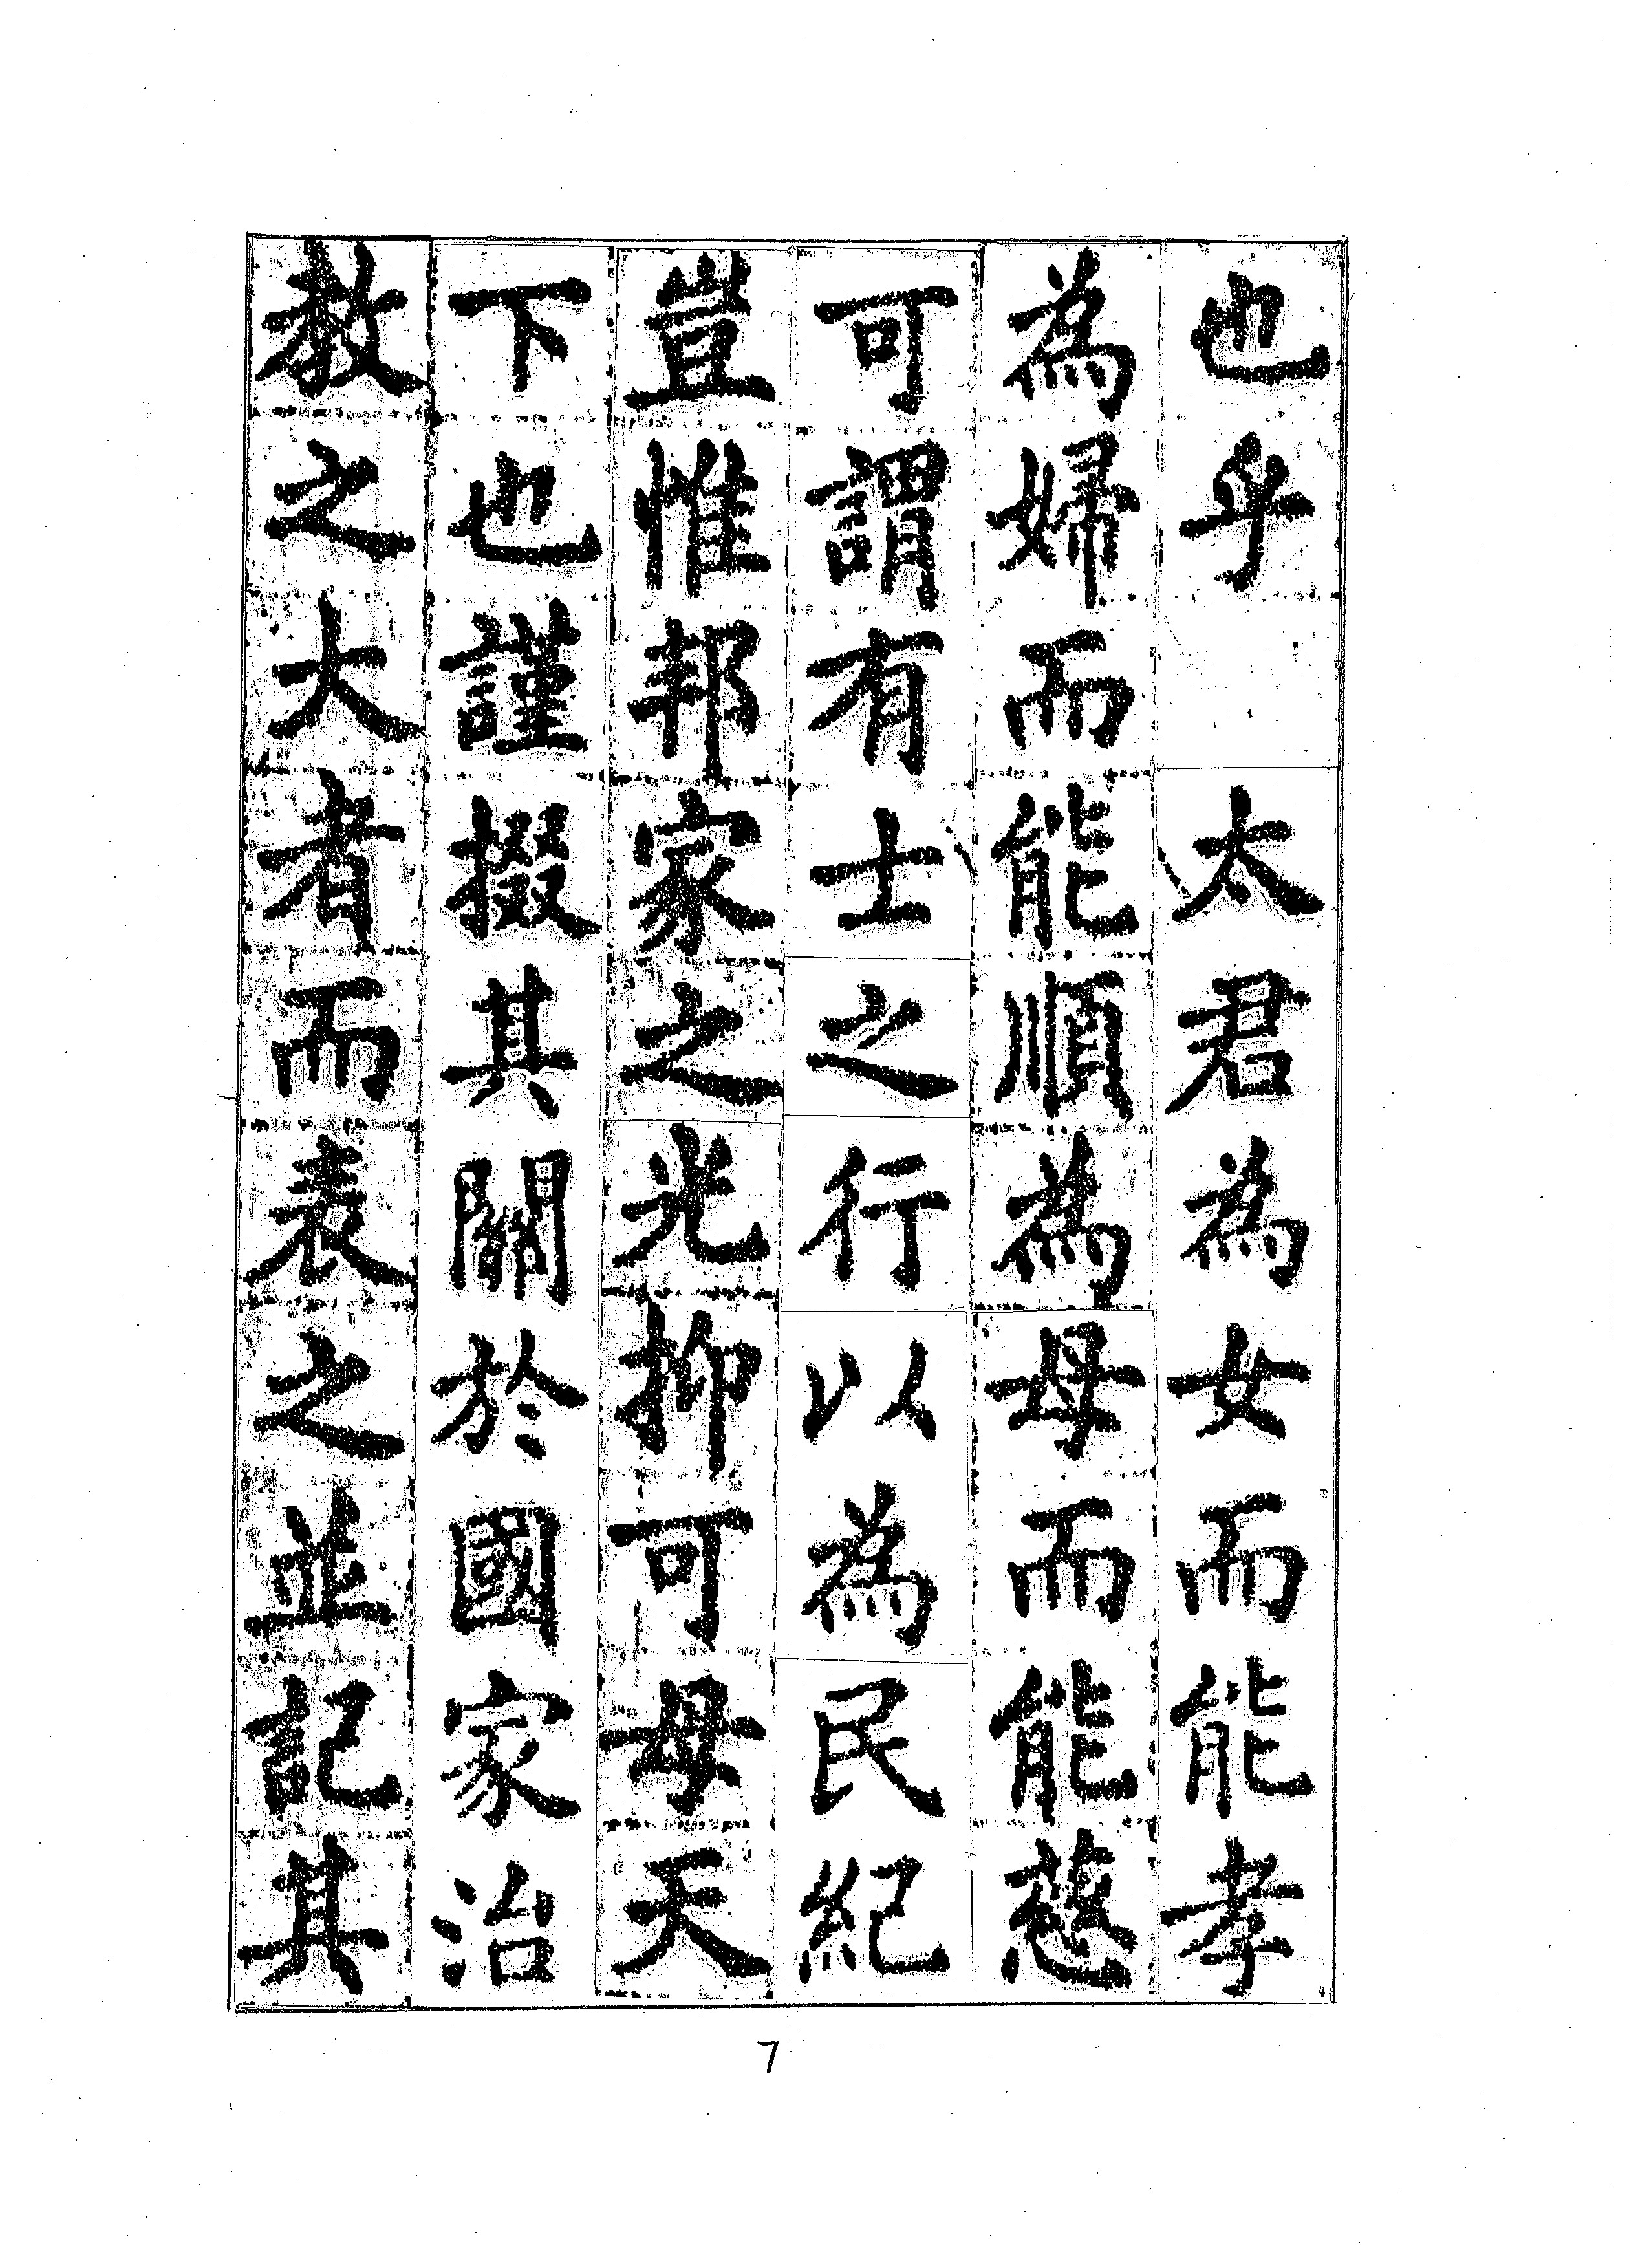 也乎　太君為女而能孝
為婦而能順為母而能慈
可謂有士之行以為民紀
豈惟邦家之光抑可母天
下也謹掇其關於國家治
教之大者而表之並記其
7